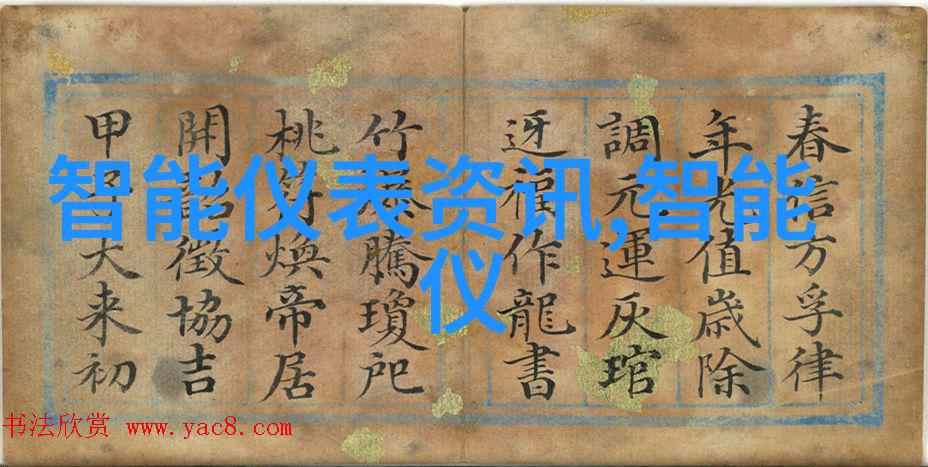 春信方孚律
年光值歲除
調元運灰琯
迓福作龍書
竹騰瓊戺
桃符煥帝居
開韶徵協吉
甲大来初
智能仪表资讯,智能
仪
书法欣赏 www.yac8.com